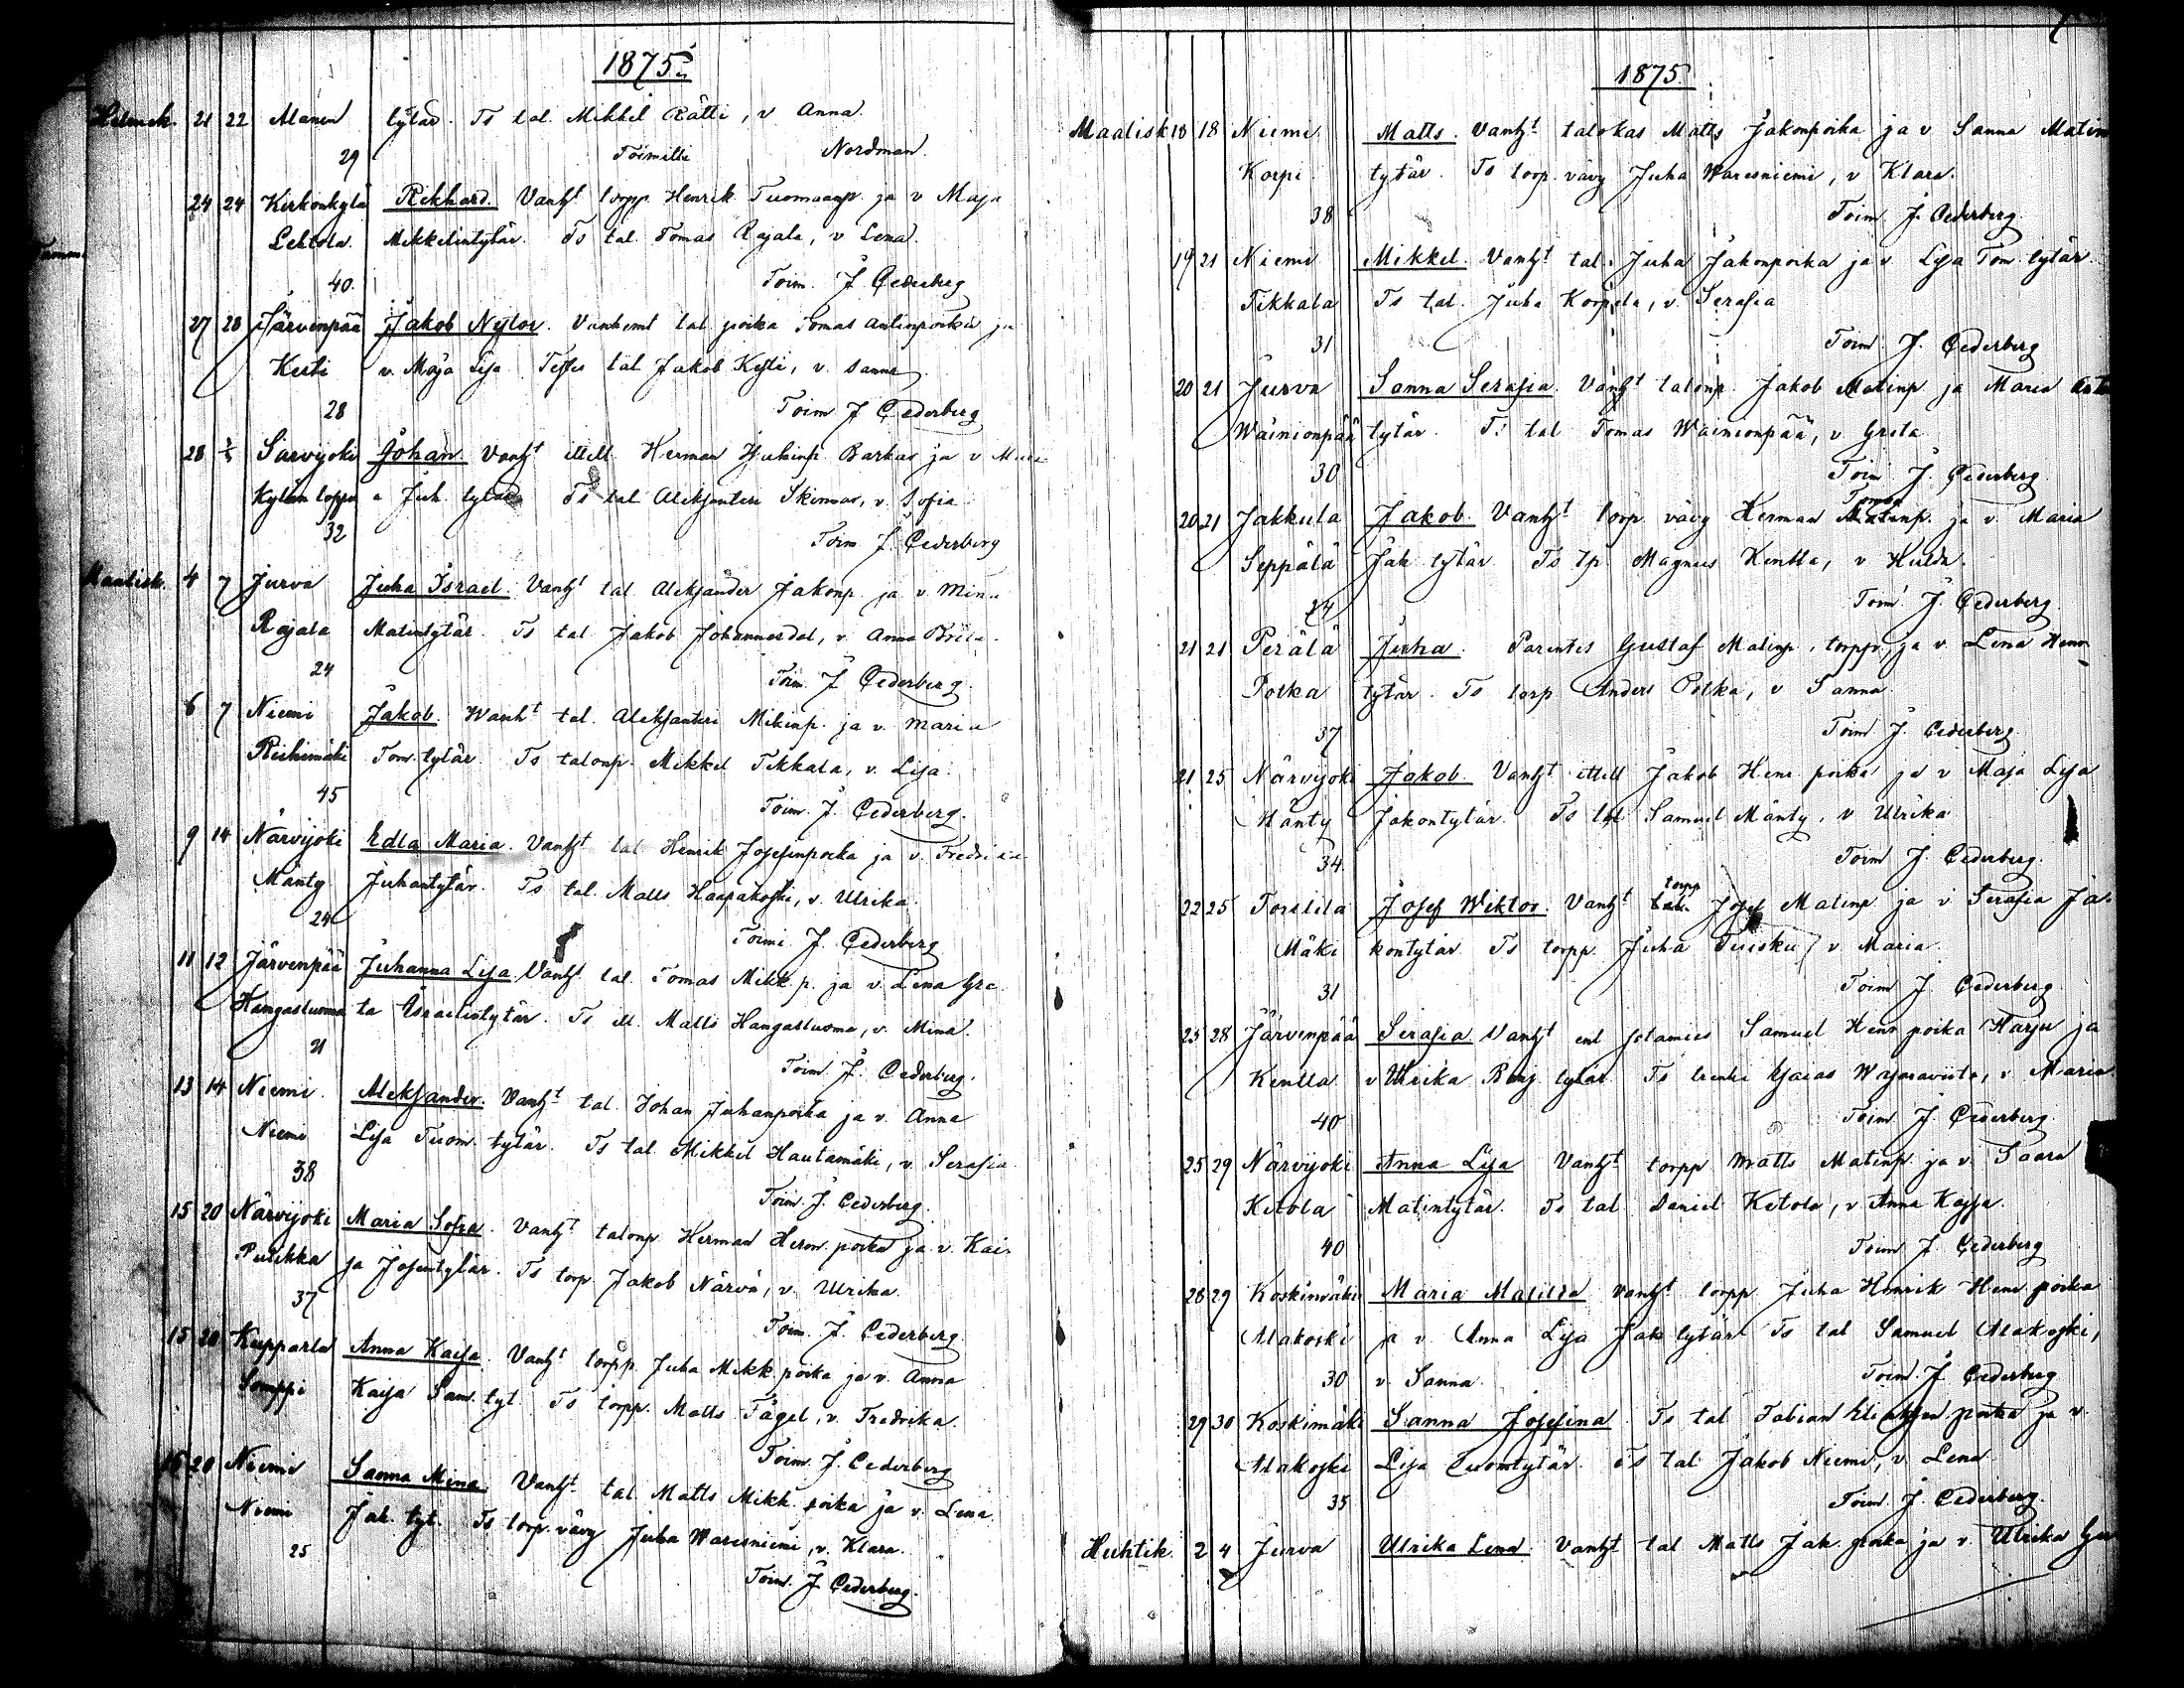 1875.
Helmik. 21 22 Alanen tytär. Ts tal. Mikkel Rätti, v Anna.
29 Toimitti Nordman.
24 24 Kirkonkylä Rikhard. Vanht torpp. Henrik Tuomaanp. ja v Maja
Lehtola. Mikkelintytär. Ts tal. Tomas Rajala, v Lena.
40. Toim. J. Cederberg
27 28 Järvenpää Jakob Nylov. Vanhemt tal poika Tomas Antinpoika ja
Kesti v. Maja Lisa Testes tal Jakob Kesti, v. Sanna
28 Toim J Cederberg
28 Särvijoki Johan. Vanht itell. Herman Juhinp. Barkar ja v
Kylän loppu a Juh. tytär Ts tal Aleksanteri Skinnar, v. Sofia
32 Toim J. Cederberg
Maalisk. 4 7 Jurva Juha Israel. Vanht tal Aleksander Jakonp. ja v. Mina
Rajala Matintytär. Ts tal Jakob Johannesdal, v. Anna Brita.
24 Toim. J Cederberg.
6 7 Niemi Jakob. Wanht tal. Aleksanteri Mikinp. ja v. Maria
Riihimäki Tom. tytär. Ts talonp. Mikkel Tikkala, v. Lisa.
45 Toim. J. Cederberg.
9 14 Närvijoki Edla Maria. Vanht tal Henrik Josefinpoika ja v. Fredrika
Mänty Juhantytär. Ts tal. Matts Haapakoski, v. Ulrika.
24 Toimi J. Cederberg
11 12 Järvenpää Juhanna Lisa. Vanht tal. Tomas Mikk. p. ja v. Lena Gre
Hangasluoma ta Israelintytär. Ts itl. Matts Hangasluoma, v. Mina.
21 Toim. J. Cederberg.
13 14 Niemi. Aleksander. Vanht tal. Johan Juhanpoika ja v. Anna
Niemi Lisa Tuom. tytär. Ts tal Mikkel Hautamäki, v. Serafia.
38 Toim. J. Cederberg.
15 20 Närvijoki Maria Sofia. Vanht talonp. Herman Herm. poika ja v. Kai-
Pulikka sa Josefintytär. Ts torp Jakob Närvä, v. Ulrika.
37 Toim. J. Cederberg
15 20 Kupparla Anna Kaisa. Vanht torpp. Juha Mikk. poika ja v. Anna
Somppi Kaisa Sam. tyt. Ts torpp. Matts Fågel, v. Fredrika.
Toim. J. Cederberg
16 20 Niemi Sanna Mina. Vanht tal. Matts Mikk. poika ja v. Lena
Niemi Jak. tyt. Ts torp. vävy Juha Waresniemi, v. Klara.
25 Toim. J. Cederberg.
1875.
Maalisk 18 18 Niemi Matts. Vanht talokas Matts Jakonpoika ja v. Sanna Matin
Korpi tytär. Ts torp. vävy Juha Waresniemi, v Klara.
38 Toim. J. Cederberg.
19 21 Niemi Mikkel. Vanht tal. Juha Jakonpoika ja v. Lisa Tom. tytär.
Tikkala Ts tal. Juha Korpela, v. Serafia
31 Toim. J. Cederberg
20 21 Jurva Sanna Serafia. Vanht talonp. Jakob Matinp ja Maria
Wäinionpää tytär. Ts tal Tomas Wäinionpää, v Greta
30 Toim J. Cederberg.
20 21 Jakkula Jakob. Vanht torp vävy Herman Matinp. ja v. Maria
Seppälä Jak tytär Ts tp. Magnus Kentta, v Hulda.
24 Toim. J. Cederberg.
21 21 Perälä Juha. Parentes Gustaf Matinp, torpp, ja v. Lena Henr
Potka tytär. Ts torp Anders Potka, v Sanna
37 Toim J. Cederberg
21 25 Närvijoki Jakob. Vanht itell Jakob Henr. poika ja v Maja Lisa
Mänty Jakontytär. Ts tal Samuel Mänty, v Ulrika
34. Toim J. Cederberg.
22 25 Torttila Josef Wiktor. Vanht torpp Josef Matinp ja v Serafia Ja-
Mäki kontytär. Ts torpp. Juha Tuisku, v Maria.
31 Toim J. Cederberg.
25 28 Järvenpää Serafia. Vanht ent sotamies Samuel Henr poika Harju ja
Kentta v Ulrika Benj. tytär. Ts renki Esaias v. Maria.
40 Toim J Cederberg
25 29 Närvijoki Anna Lisa Vanht torpp Matts Matinp ja v. Saara
Ketola Matintytär. Ts tal. Daniel Ketola, v. Anna Kaysa.
40 Toim J. Cederberg
28 29 Koskimäki Maria Matilda Vanht torpp Juha Henrik Henr poika
Alakoski ja v. Anna Lisa Jak tytär. Ts tal Samuel Alakoski,
30 v. Sanna. Toim. J. Cederberg
29 30 Koskimäki Sanna Josefina. Ts tal Fabian poika ja v.
Alakoski Lisa Tuomtytär. Ts tal Jakob Niemi, v. Lena
35 Toim. J. Cederberg.
Huhtik. 2 4 Jurva Ulrika Lena. Vanht tal Matts Jak. poika ja v. Ulrika